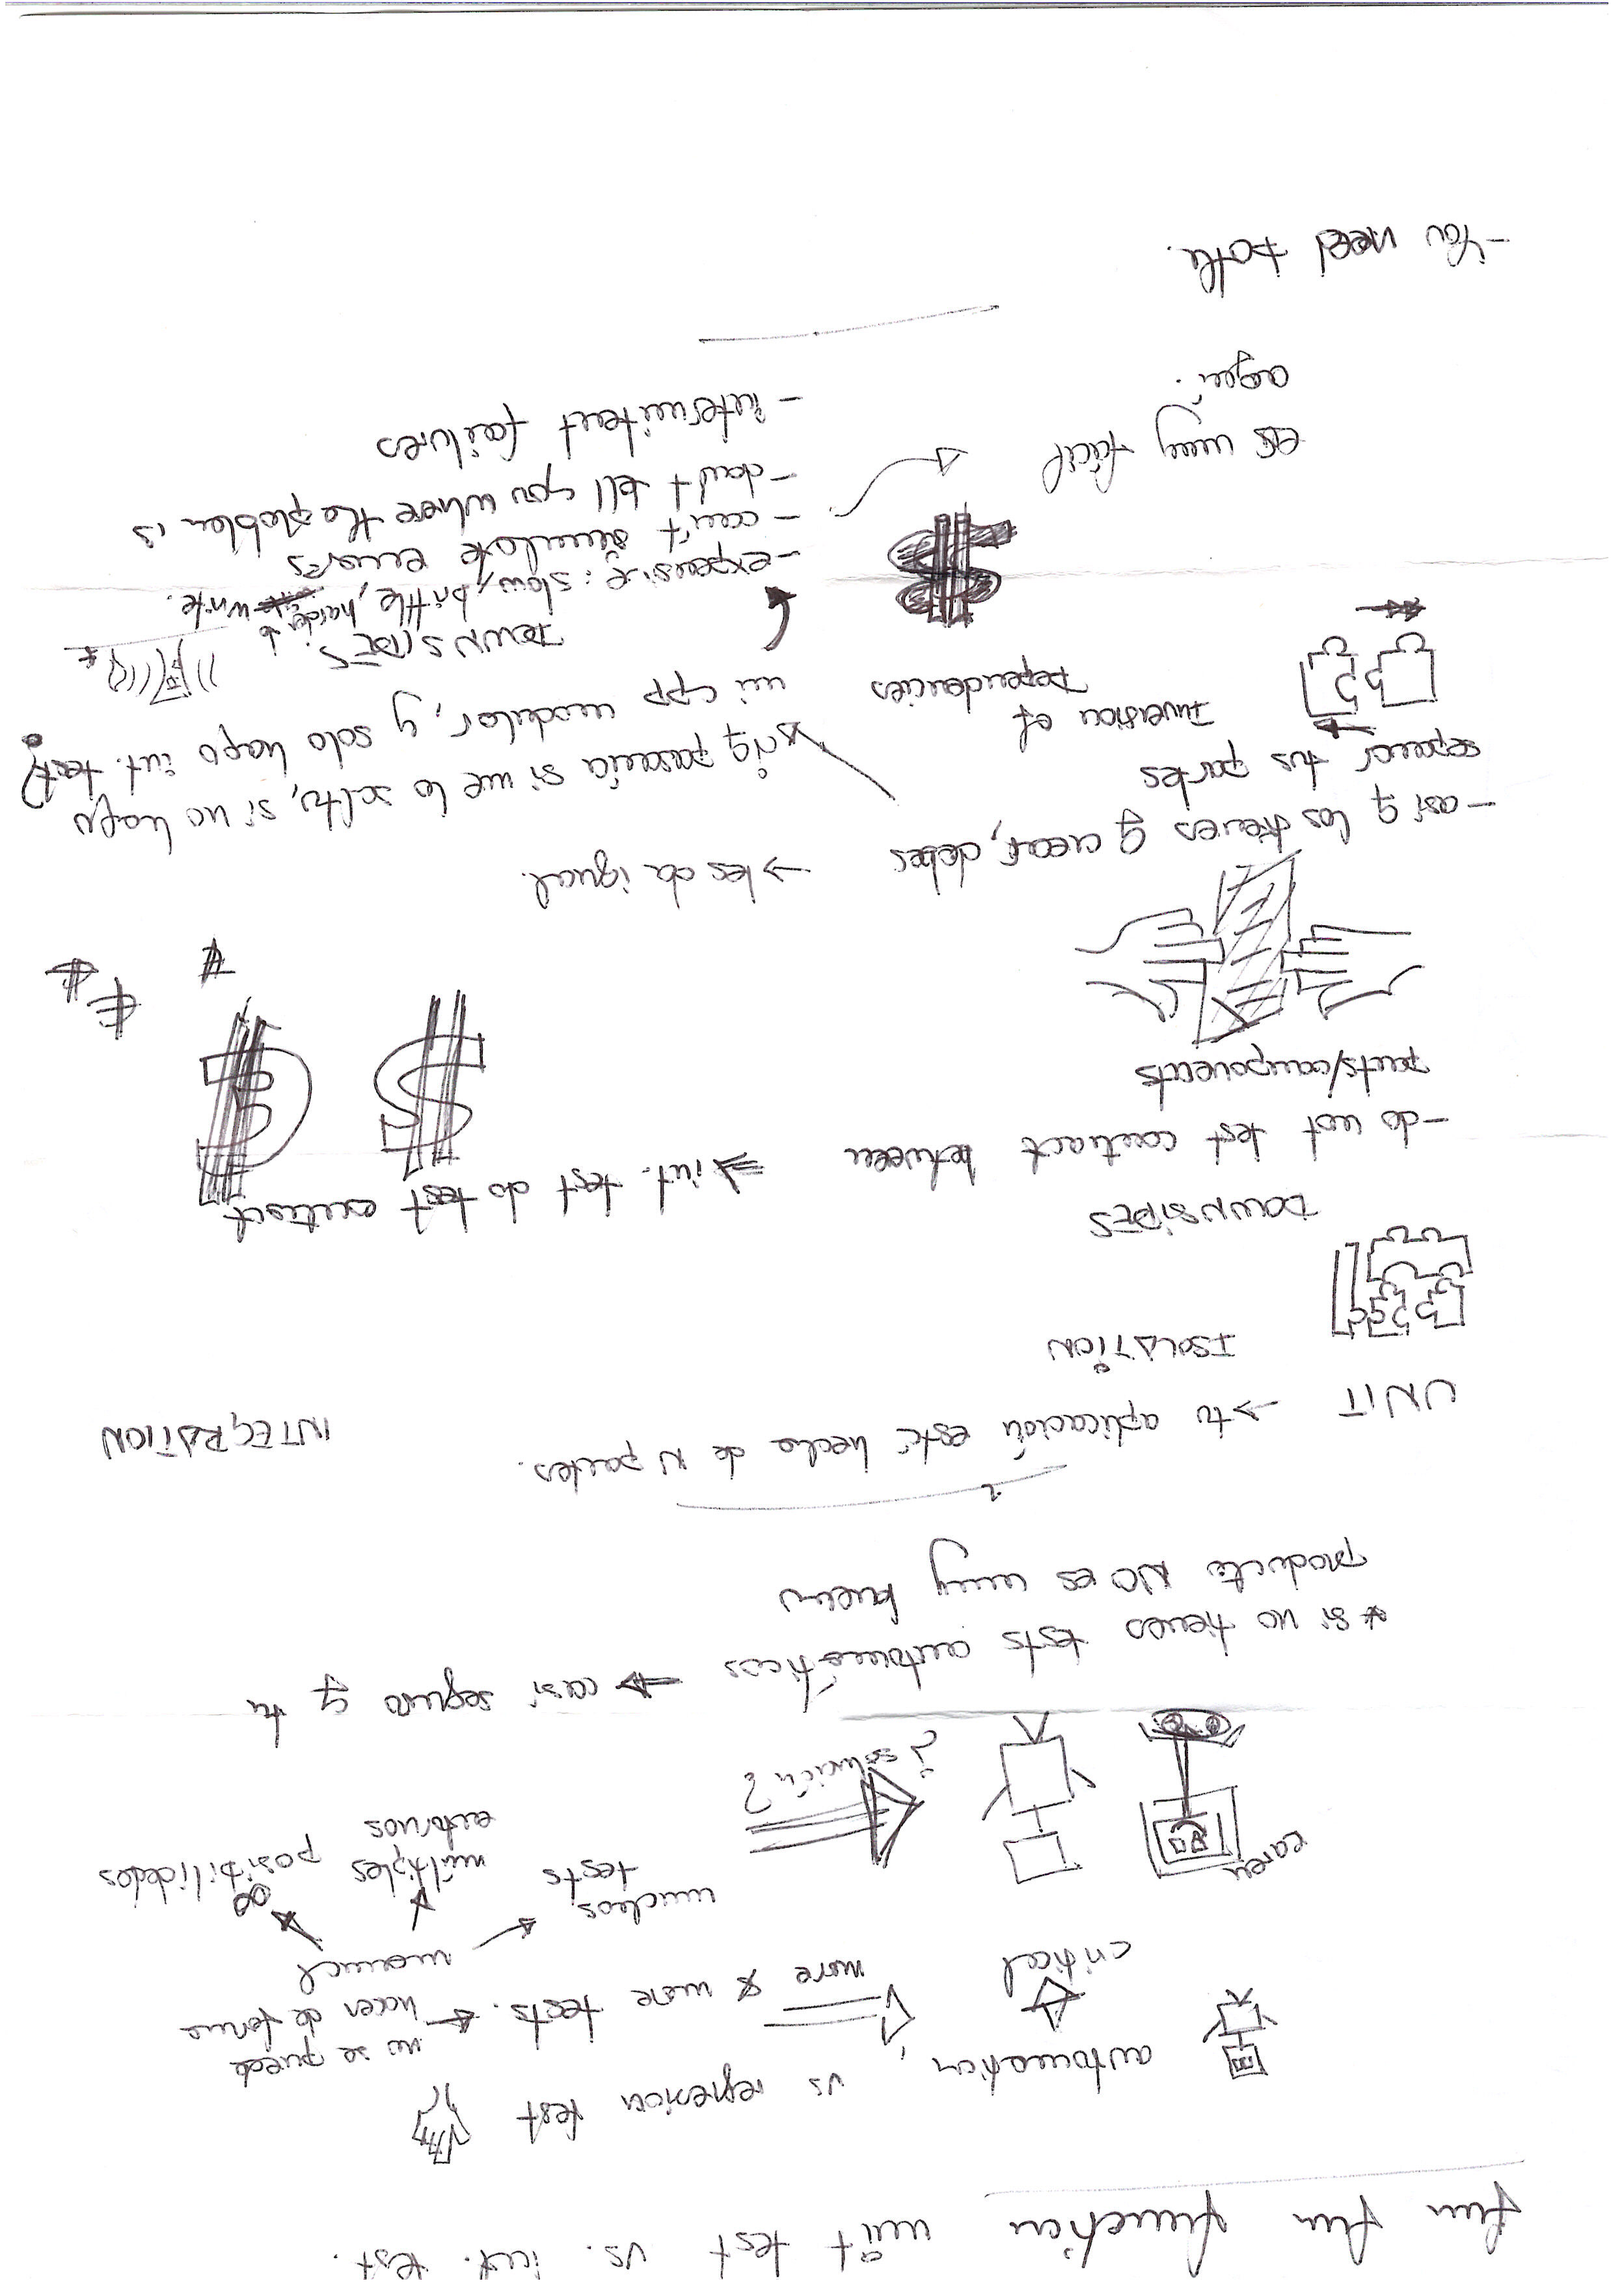 fun fun function unit test vs. int. test.
automation, vs regresion test
critical
more & more tests.
no se puede
hacer de forma
manual
muchos
tests
múltiples
entornos
∞
posibilidades
karen
¿solución?
* si no tienes tests automáticos → casi seguro q tu
producto NO es muy bueno
UNIT → tu aplicación está hecha de N partes.
INTEGRATION
ISOLATION
DOWNSIDES
- do not test contract between
parts/components
⇒ int. test do test contract
$ €
- asi q los tienes q crear, debes
separar tus partes
→ les da igual.
Inversion of
Dependencies
¿q pasaría si me lo salto, si no hago
mi app modular, y solo hago int. test?
DOWNSIDES
- expensive: slow, brittle, harder to write.
- can't simulate errors
- don't tell you where the problem is
- intermitent failures
$
es muy fácil
aquí.
- You need both.